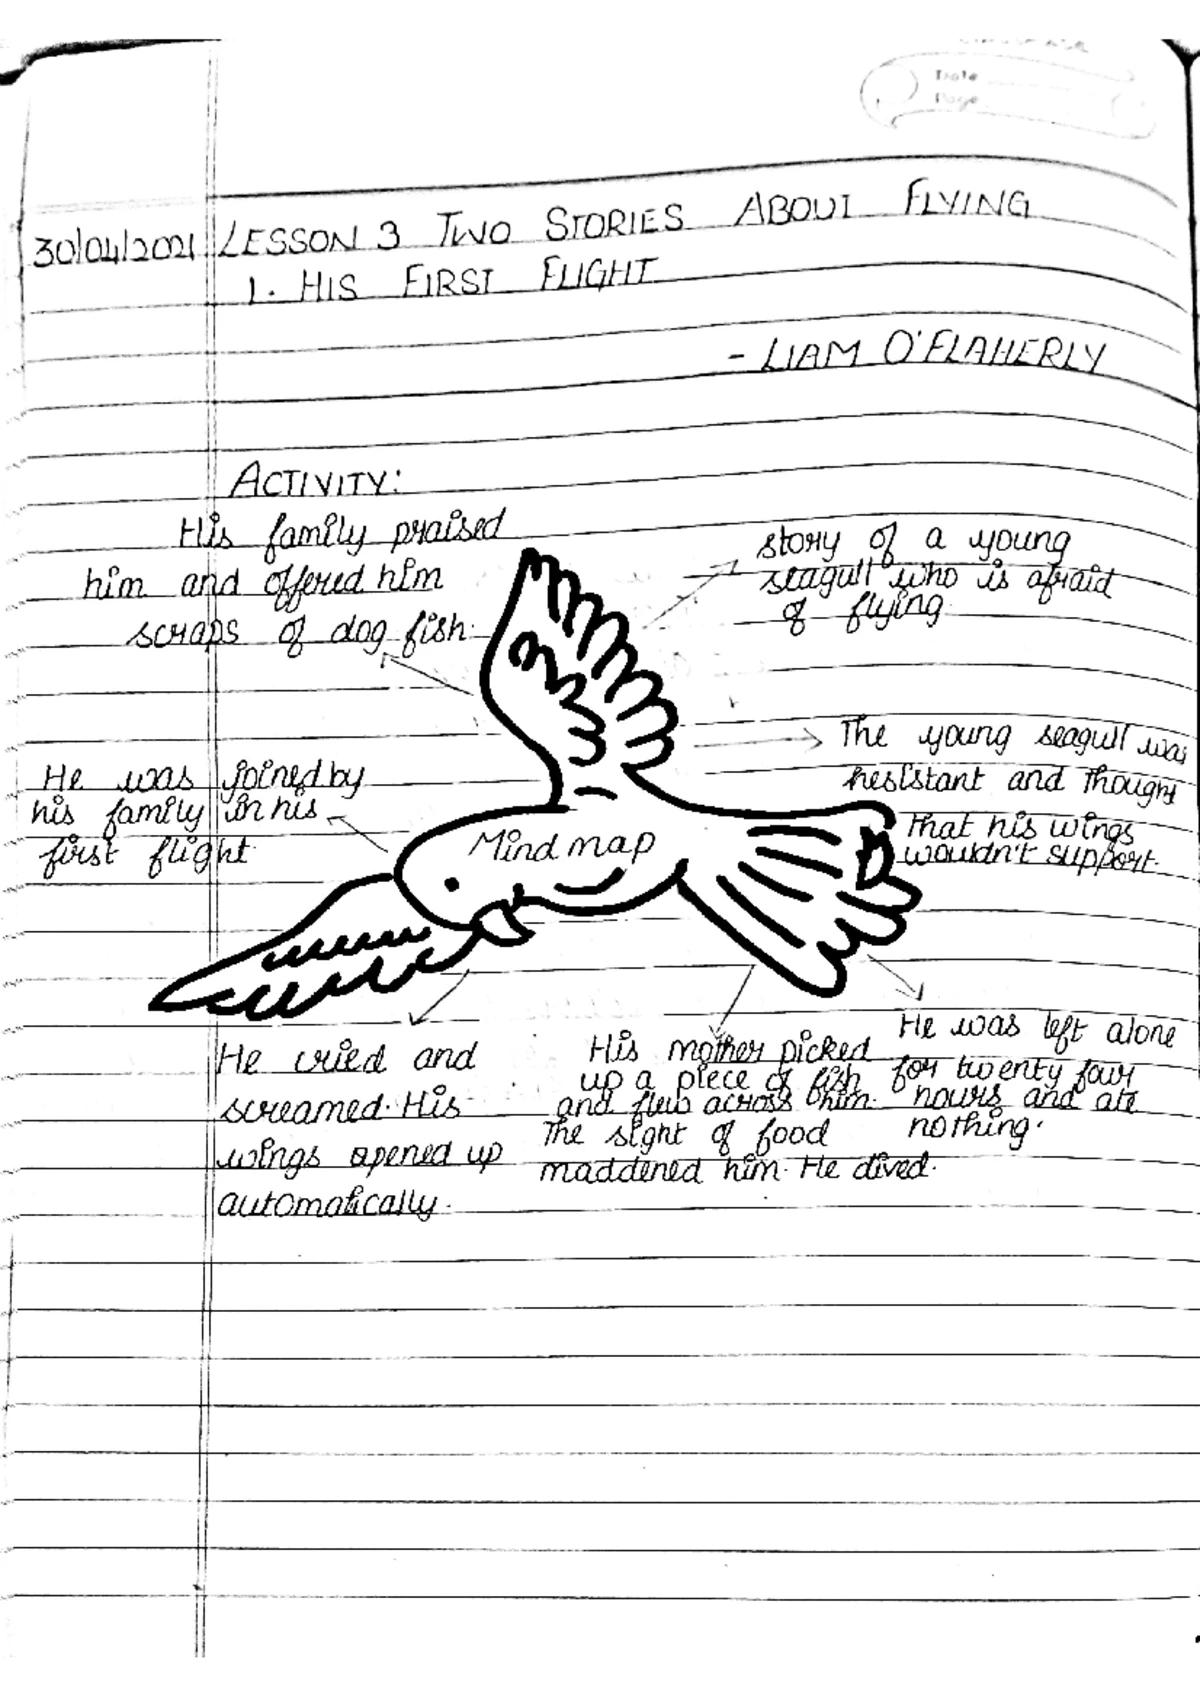 Date
Page
30/04/2021 LESSON 3 TWO STORIES ABOUT FLYING
1. HIS FIRST FLIGHT
- LIAM O'FLAHERLY
ACTIVITY:
His family praised
him and offered him
scraps of dog fish.
story of a young
seagull who is afraid
of flying.
The young seagull was
hesistant and thought
that his wings
wouldn't support.
He was joined by
his family in his
first flight
Mind map
He was left alone
for twenty four
hours and ate
nothing.
His mother picked
up a piece of fish
and flew across him.
The sight of food
maddened him. He dived.
He cried and
screamed. His
wings opened up
automatically.